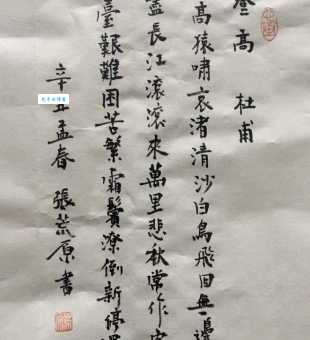 登高 杜甫
高猿嘯哀渚清沙白鳥飛回無邊
盡長江滾滾來萬里悲秋常作客
臺艱難困苦繁霜鬢潦倒新停
辛丑孟春 張荒原書